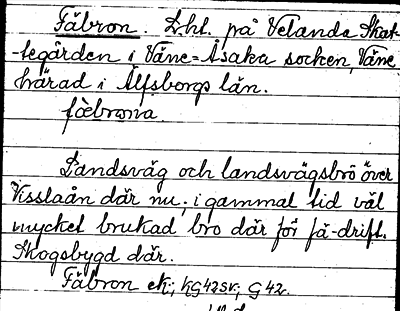 Fäbron. Lht. på Velanda Skat-
-tegården i Väne-Åsaka socken, Väne
härad i Älfsborgs län.
fäbrona
Landsväg och landsvägsbro över
Visslaån där nu, i gammal tid väl
mycket brukad bro där för fä-drift.
Skogsbygd där.
Fäbron ek; hG42SV; G42.